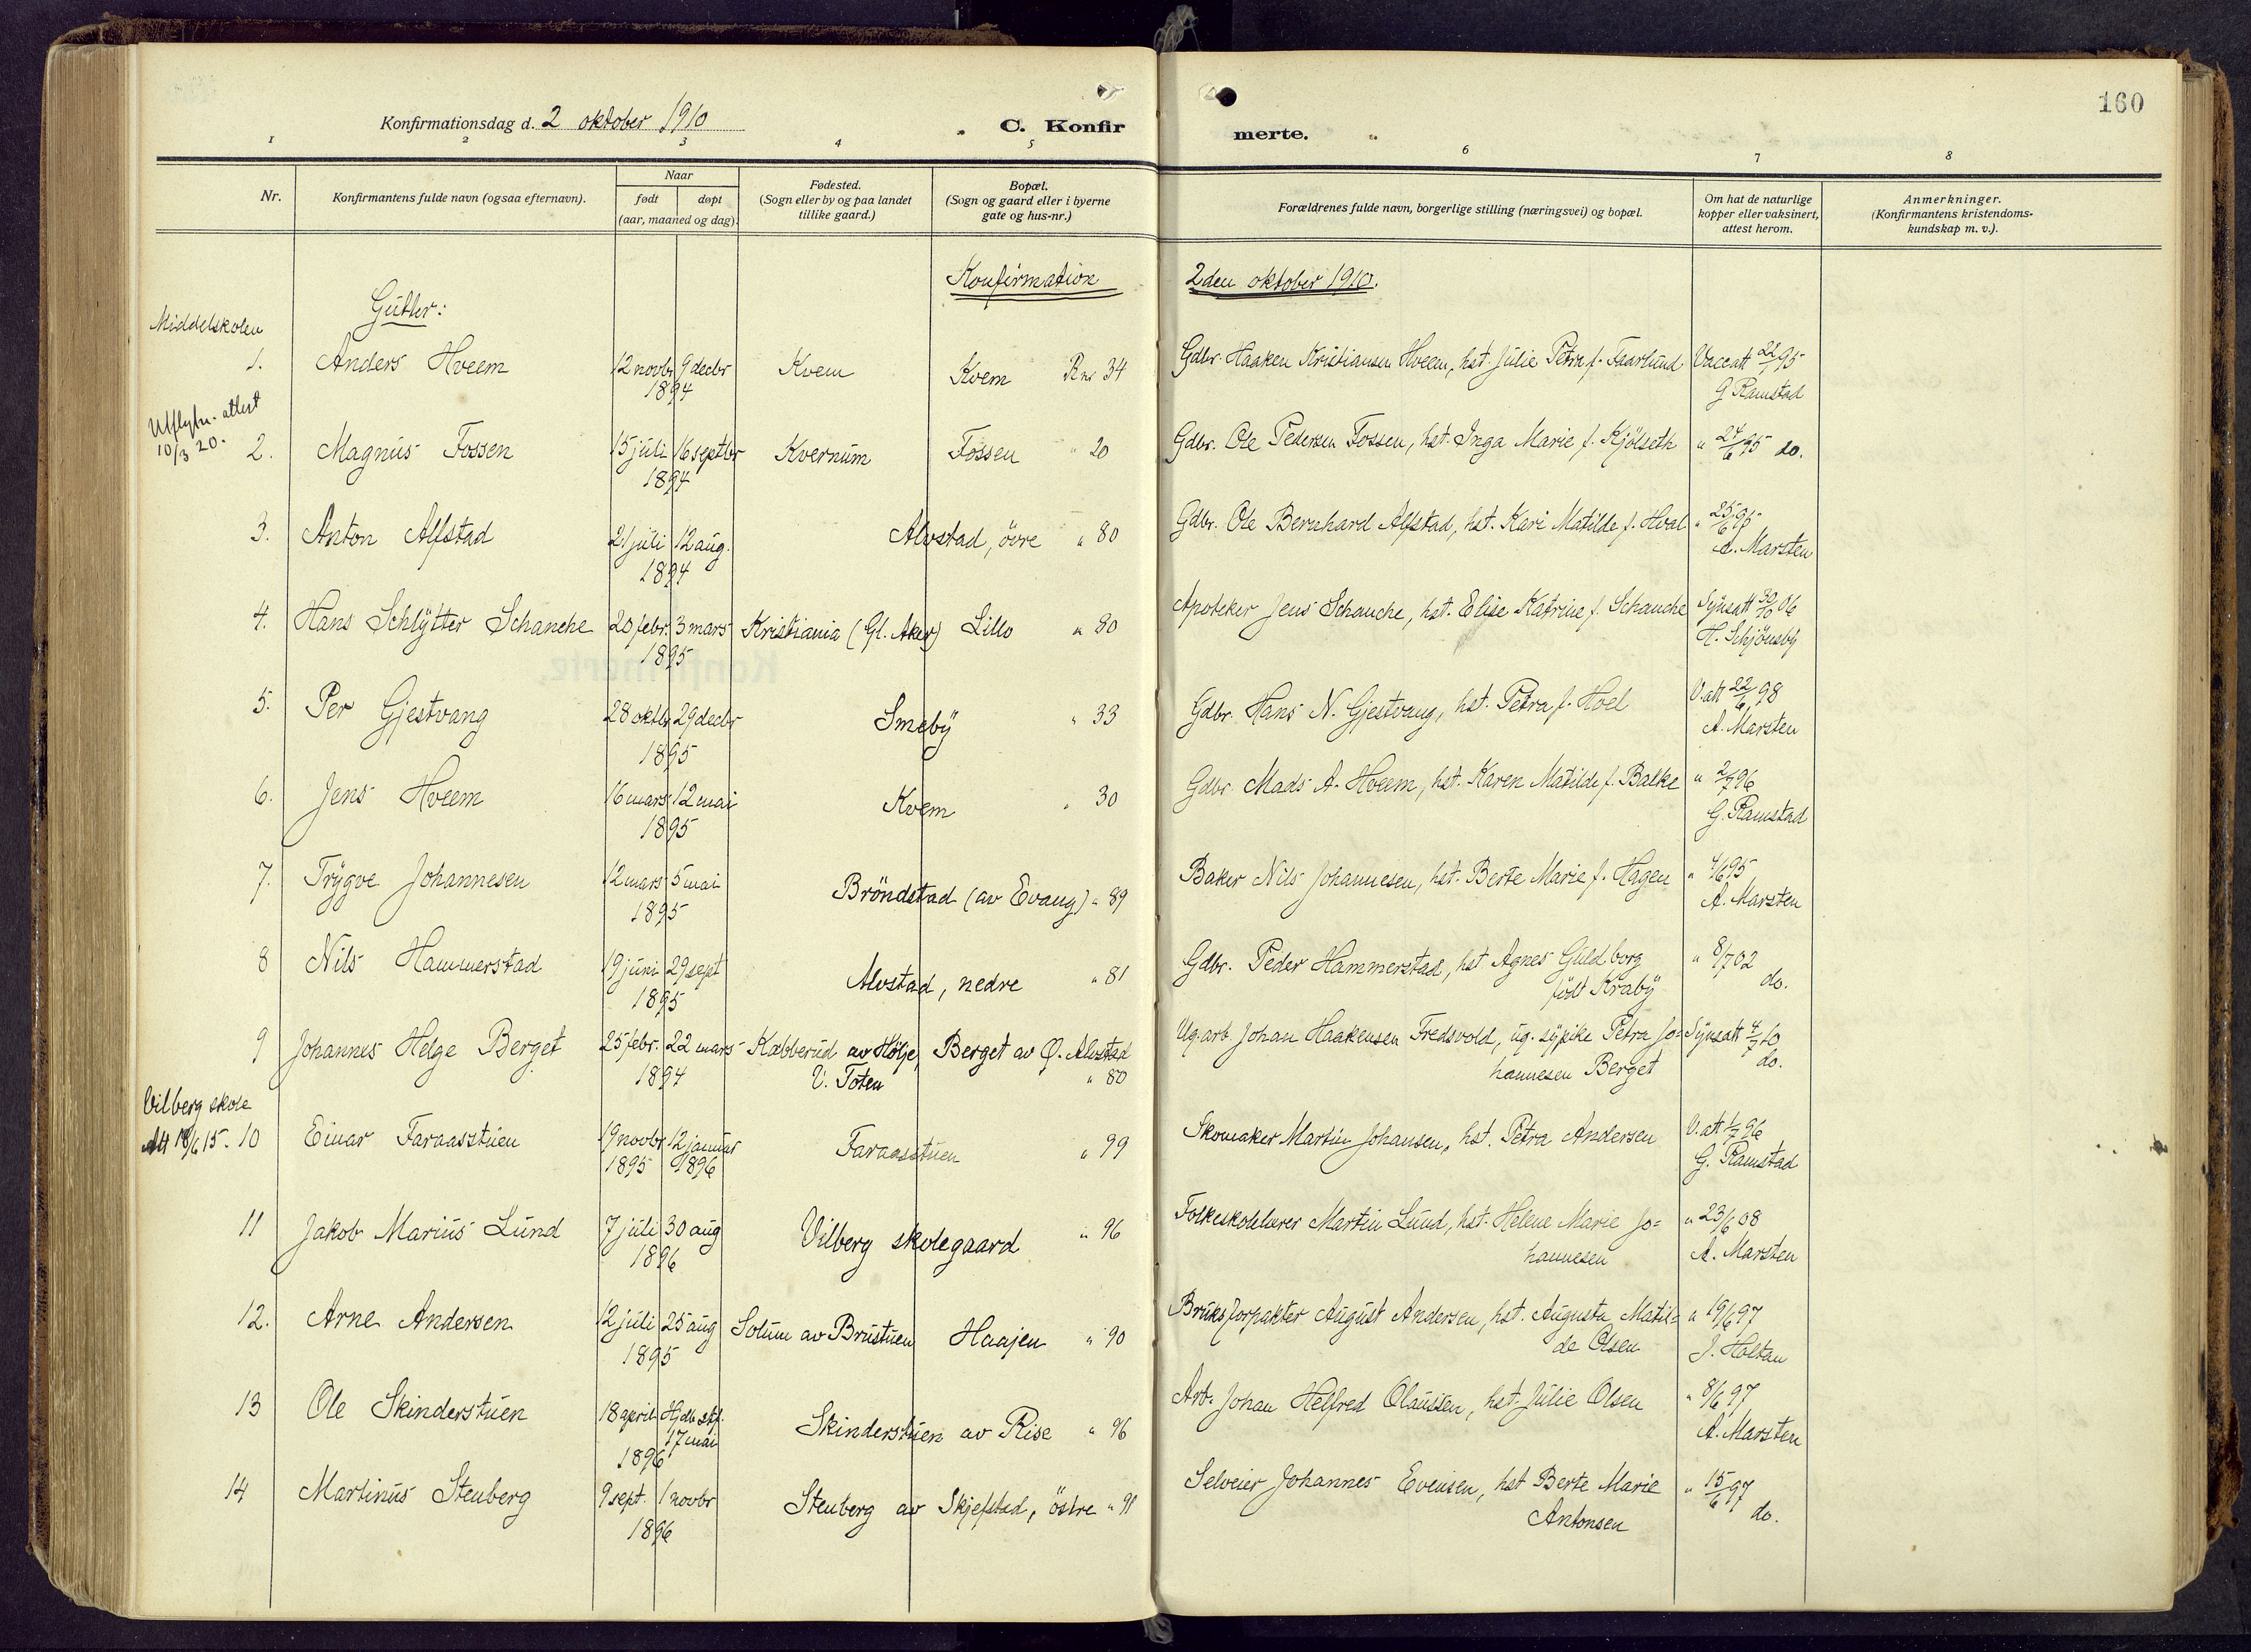 160
Konfirmationsdag d. 2 oktober 1910
C. Konfir merte.
1 2 3 4 5 6 7 8
Nr.
Konfirmantens fulde navn (ogsaa efternavn).
Naar
født døpt
(aar, maaned og dag).
Fødested.
(Sogn eller by og paa landet
tillike gaard.)
Bopæl.
(Sogn og gaard eller i byerne
gate og hus-nr.)
Forældrenes fulde navn, borgerlige stilling (næringsvei) og bopæl.
Om hat de naturlige
kopper eller vaksinert,
attest herom.
Anmerkninger.
(Konfirmantens kristendoms-
kundskap m. v.).
Konfirmation 2den oktober 1910.
Gutter:
Middelskolen
1. Anders Hveem 12 novbr 9 decbr Kvem Kvem R nr 34 Gdbr. Haaken Kristiansen Hveem, hst. Julie Petra f. Faarlund Vaccatt 22/1 95
1894 G Ramstad
Utflytn. attest
10/3 20.
2. Magnus Fossen 15 juli 16 septbr Kvernum Fossen " 20 Gdbr. Ole Pedersen Fossen, hst. Inga Marie f. Kjölseth " 24/6 95 do.
1894
3. Anton Alfstad 21 juli 12 aug. Alvstad, övre " 80 Gdbr. Ole Bernhard Alfstad, hst. Kari Matilde f. Hval " 25/6 95
1894 A. Marsten
4. Hans Schlytter Schanche 20 febr. 3 mars Kristiania (Gl. Aker) Lillo " 80 Apoteker Jens Schanche, hst. Elise Katrine f. Schanche Synsatt 30/6 06
1895 H. Schjönsby
5. Per Gjestvang 28 oktbr 29 decbr Smeby " 33 Gdbr. Hans N. Gjestvang, hst. Petra f. Hoel V. att 22/6 98
1895 A. Marsten
6. Jens Hveem 16 mars 12 mai Kvem " 30 Gdbr. Mads A. Hveem, hst. Karen Matilde f. Balke " 2/7 96
1895 G. Ramstad
7. Trygve Johannesen 12 mars 5 mai Bröndstad (av Evang) " 89 Baker Nils Johannesen, hst. Berte Marie f. Hagen " 4/6 95
1895 A. Marsten
8 Nils Hammerstad 19 juni 29 sept Alvstad, nedre " 81 Gdbr. Peder Hammerstad, hst Agnes Guldborg " 8/7 02
1895 født Kraby do.
9 Johannes Helge Berget 25 febr. 22 mars Kabberud av Hölje, Berget av Ø. Alvstad Ug. arb Johan Haakensen Fredsvold, ug. sypike Petra Jo= Synsatt 4/7 10
1894 V. Toten " 80 hannesen Berget do.
Vilberg skole
Att 18/6 15. 10 Einar Faraasstuen 19 novbr 12 januar Faraasstuen " 99 Skomaker Martin Johansen, hst. Petra Andersen V. att 1/7 96
1895 1896 G. Ramstad
11 Jakob Marius Lund 7 juli 30 aug Vilberg skolegaard " 96 Folkeskolelærer Martin Lund, hst. Helene Marie Jo= " 23/6 08
1896 hannesen A. Marsten
12. Arne Andersen 12 juli 25 aug Solum av Brustuen Haajen " 90 Bruksforpakter August Andersen, hst. Augusta Matil= " 19/6 97
1895 de Olsen J. Holtan
13 Ole Skinderstuen 18 april Hjdb. stf. Skinderstuen av Rise " 96 Arb. Johan Helfred Olaussen, hst. Julie Olsen " 8/6 97
17 mai
1896 A. Marsten
14 Martinus Stenberg 9 sept. 1 novbr Stenberg av Skjefstad, östre " 91 Selveier Johannes Evensen, hst Berte Marie " 15/6 97
1896 Antonsen do.